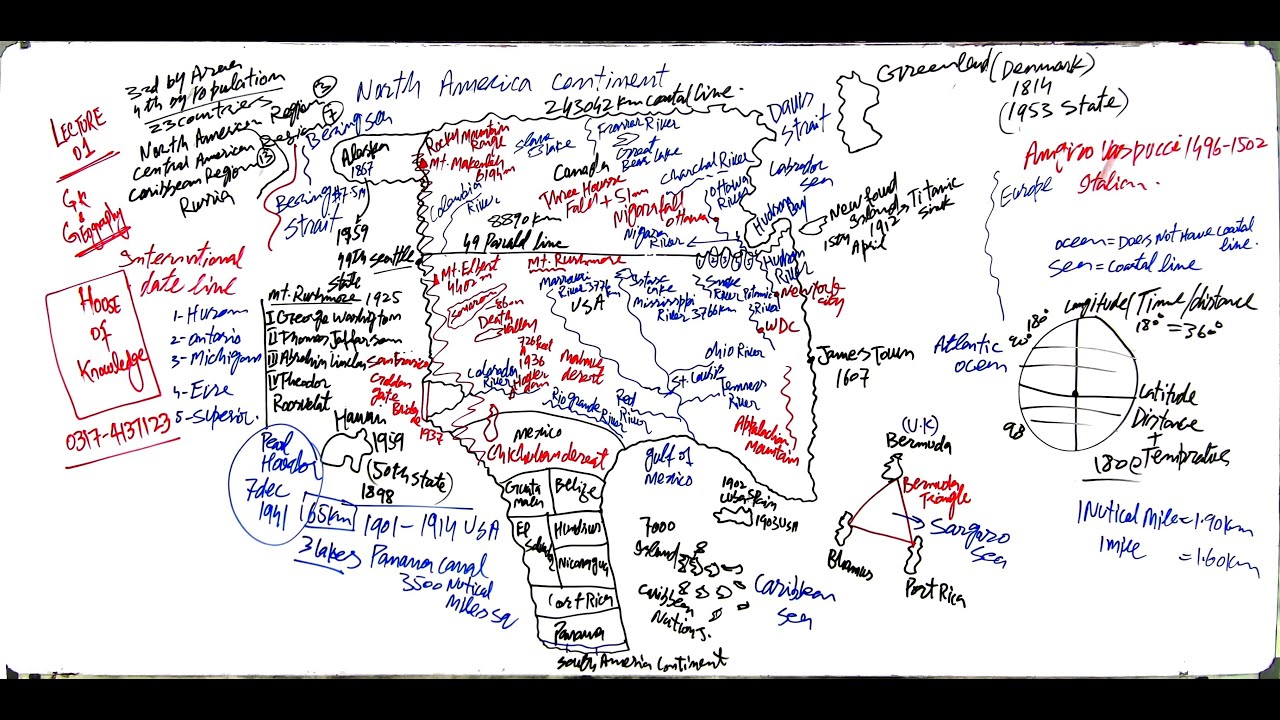 LECTURE
01
GK
&
Geography
3rd by Area
4th by Population
23 countries
North American Region 3
Central American Region 7
Caribbean Region 13
Russia
North America Continent
243042 km coastal line.
Greenland (Denmark)
1814
(1953 State)
Davis
Strait
Bering sea
Bering
Strait
Alaska
1867
$7.5M
1959
49th
state
seattle
Rocky Mountain
Range
Slave
Lake
Fraser River
Great
Bear Lake
Canada
Columbia
River
8890 km
49 Parald line
Ottawa
River
Ottawa
Nigara
River
Labrador
Sea
Hudson
Bay
Newfound
Island
15th
April
1912
Titanic
sink
1496-1502
Italian.
Europe
ocean = Does Not Have coastal
line.
sea = Coastal line
International
date line
HOUSE
OF
Knowledge
0317-4137123
1- Huron
2- ontario
3- Michigan
4- Erre
5- Superior.
Mt. Rushmore 1925
I George Washington
II Thomas Jafferson
III Abrahim Lincoln
IV Theodor
Roosvelat
Mt. Elbert
4402 m
Mt. Rushmore
-86 m
Death
Valley
River 3776 km
USA
Mississippi
River 3766 km
1 2 3 4 5
Snake
River
Hudson
River
Newyork
city
WDC
James Town
1607
Atlantic
ocean
Longitude/Time/distance
180° = 360°
180°
90°
90
Latitude
Distance
+
Tempratures
San Francisco
Golden
gate
Bridge
1937
Colorado
River
726 feet
1936
Hoover
dam
desert
Ohio River
St. Louis
Rio grande
River
Red
River
River
Mountain
Hawaii
1959
(50th State)
1898
Pearl
Harbor
7 dec
1941
65km
1901-1914 USA
3 lakes Panama canal
3500 Nutical
Miles
Mexico
desreat
gulf of
Mexico
Guata
mala
Belize
El
Nicaragua
Cost Rica
Panama
South America Continent
1902
1903 USA
7000
Island
Caribbean
Nations.
Caribbean
sea
(U.K)
Bermuda
Bermuda
Triangle
Sargazo
sea
Bhamas
Port Rica
1 Nutical Mile = 1.90 km
1 mile = 1.60 km